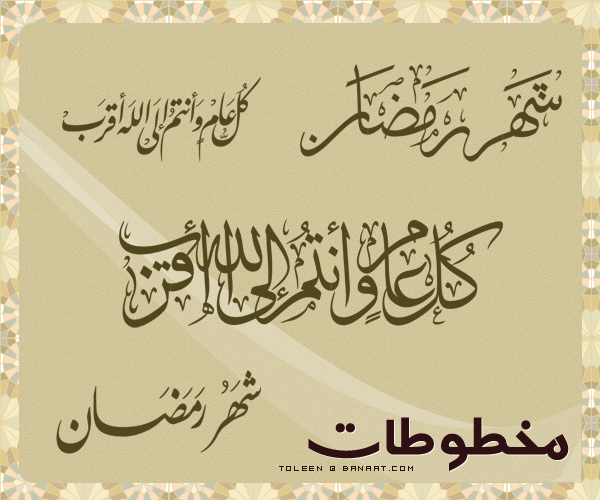 شهر رمضان
كل عام وأنتم إلى الله أقرب
كل عام وأنتم إلى الله أقرب
شهر رمضان
مخطوطات
TOLEEN @ BANAAT.COM